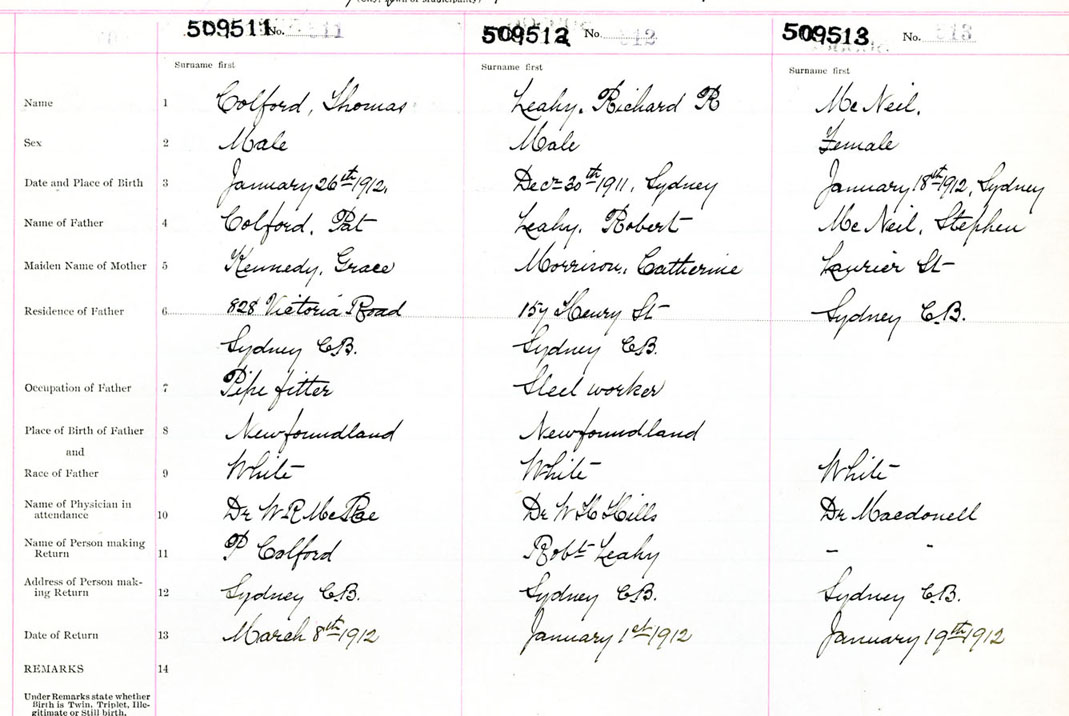 509511 No. 511
509512 No. 512
509513 No. 513
Surname first
Surname first
Surname first
Name 1 Colford, Thomas Leahy, Richard R McNeil,
Sex 2 Male Male Female
Date and Place of Birth 3 January 26th 1912, Decr 30th 1911, Sydney January 18th 1912, Sydney
Name of Father 4 Colford, Pat Leahy, Robert McNeil, Stephen
Maiden Name of Mother 5 Kennedy, Grace Morrison, Catherine Laurier St
Residence of Father 6 828 Victoria Road 157 Henry St Sydney C.B.
Sydney C.B. Sydney C.B.
Occupation of Father 7 Pipe fitter Steel worker
Place of Birth of Father 8 Newfoundland Newfoundland
and
Race of Father 9 White White White
Name of Physician in
attendance 10 Dr W R McRae Dr W H Hills Dr Macdonell
Name of Person making
Return 11 P Colford Robt Leahy - "
Address of Person mak-
ing Return 12 Sydney C.B. Sydney C.B. Sydney C.B.
Date of Return 13 March 8th 1912 January 1st 1912 January 19th 1912
REMARKS 14
Under Remarks state whether
Birth is Twin, Triplet, Ille-
gitimate or Still birth.